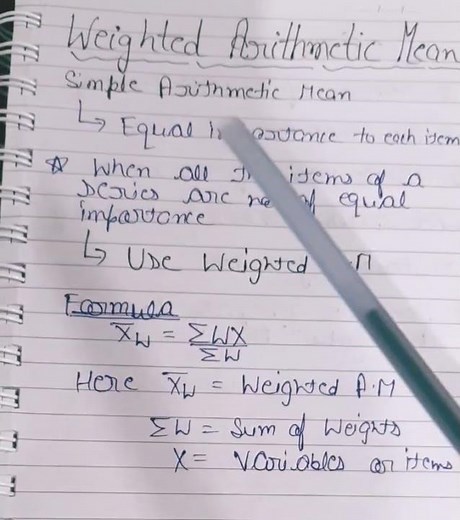 Weighted Arithmetic Mean
Simple Arithmetic Mean
↳ Equal to each item
☆ When all items of a
series are of equal
importance
↳ Use Weighted
Formula
X̄w = ΣWX / ΣW
Here X̄w = Weighted A.M
ΣW = Sum of Weights
X = Variables or items